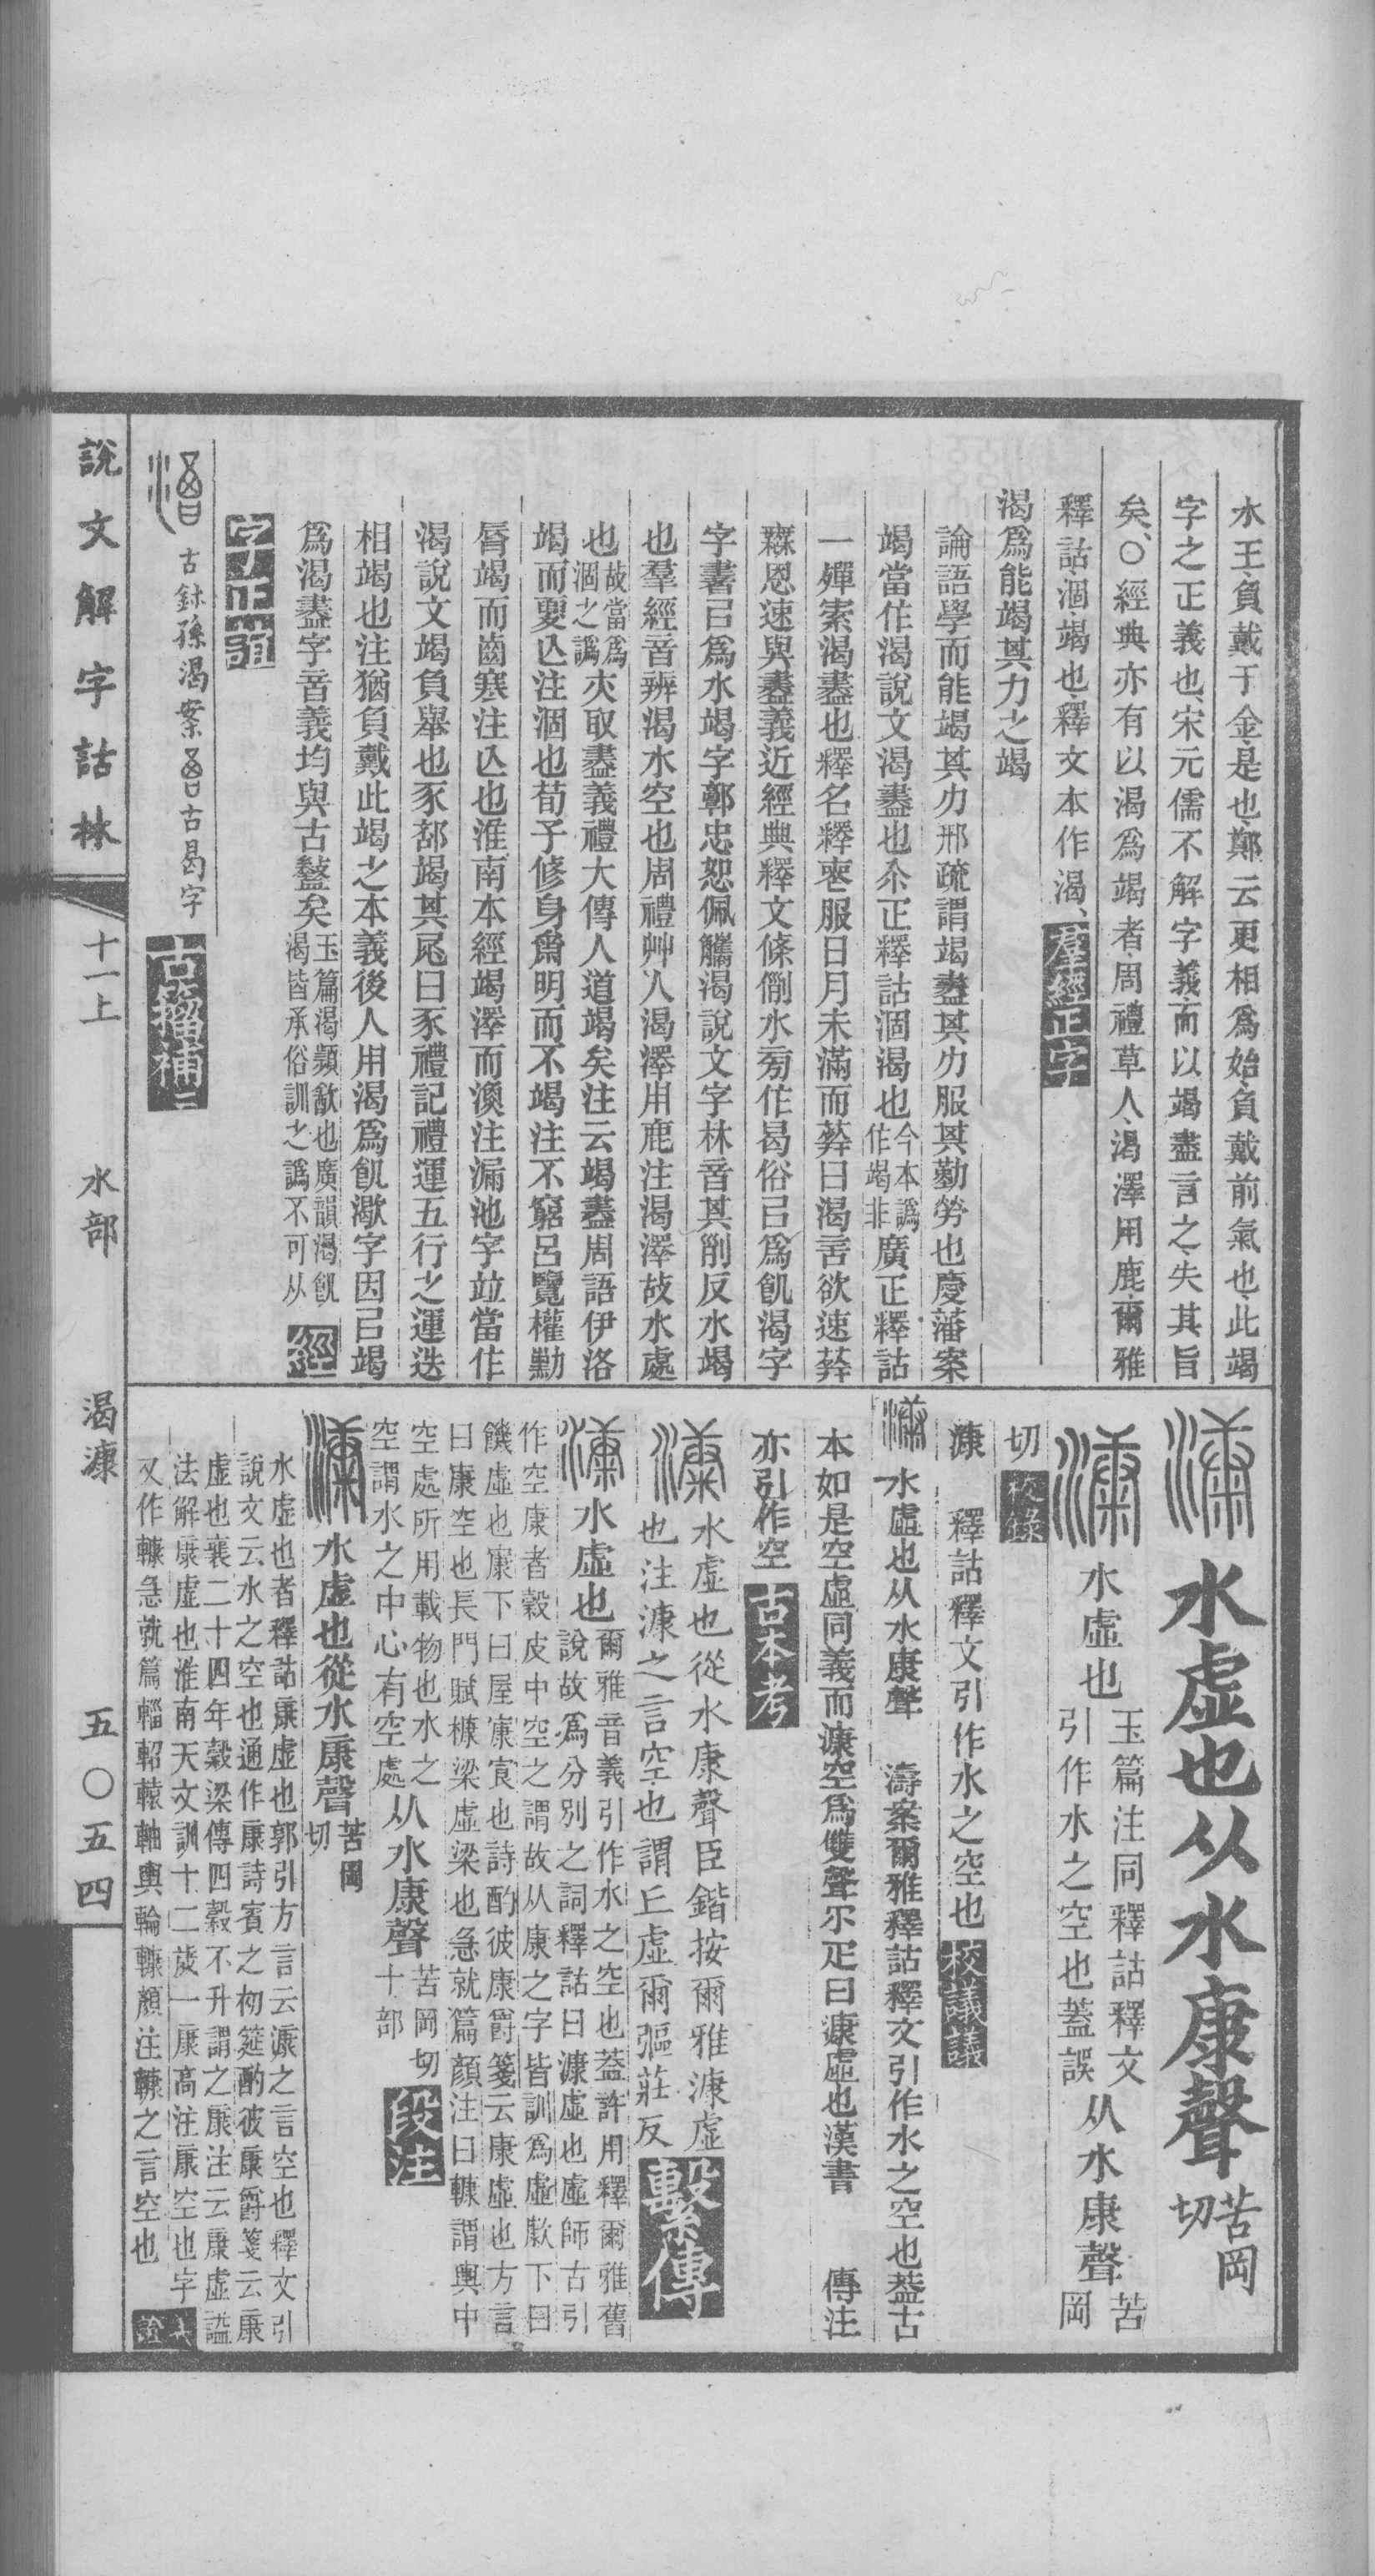 水王、負戴于金是也、鄭云更相爲始、負戴前氣也、此竭
字之正義也、宋元儒不解字義、而以竭盡言之、失其旨
矣、○經典亦有以渴爲竭者、周禮草人、渴澤用鹿、爾雅
釋詁、涸、竭也、釋文本作渴、羣經正字
渴爲能竭其力之竭
論語學而能竭其力邢疏謂竭盡其力服其勤勞也慶藩案
竭當作渴說文渴盡也尒正釋詁涸渴也今本譌作竭非廣正釋詁
一殫索渴盡也釋名釋喪服日月未滿而葬曰渴言欲速葬
無恩速與盡義近經典釋文條側水旁作曷俗㠯爲飢渴字
字書㠯爲水竭字鄭忠恕佩觿渴說文字林音其列反水竭
也羣經音辨渴水空也周禮艸人渴澤用鹿注渴澤故水處
也故當爲涸之譌夾取盡義禮大傳人道竭矣注云竭盡周語伊洛
竭而夏亾注涸也荀子修身齊明而不竭注不窮呂覽權勳
脣竭而齒寒注亾也淮南本經竭澤而漁注漏池字竝當作
渴說文竭負舉也豕部竭其尾曰豕禮記禮運五行之運迭
相竭也注猶負戴此竭之本義後人用渴爲飢㵣字因㠯竭
爲渴盡字音義均與古盭矣玉篇渴頻歠也廣韻渴飢渴皆承俗訓之譌不可从 經
字正誼
古鉨孫渴案 古曷字 古籀補
水虛也从水康聲苦岡切
水虛也玉篇注同釋詁釋文引作水之空也蓋誤从水康聲苦岡
切 校錄
漮 釋詁釋文引作水之空也 校議議
水虛也从水康聲 濤案爾雅釋詁釋文引作水之空也葢古
本如是空虛同義而漮空爲雙聲尒疋曰漮虛也漢書 傳注
亦引作空 古本考
水虛也從水康聲臣鍇按爾雅漮虛
也注漮之言空也謂丘虛爾彄莊反 繫傳
水虛也爾雅音義引作水之空也葢許用釋爾雅舊說故爲分別之詞釋詁曰漮虛也虛師古引
作空康者穀皮中空之謂故从康之字皆訓爲虛歁下曰
饑虛也㝩下曰屋㝩㝗也詩酌彼康爵箋云康虛也方言
曰康空也長門賦槺梁虛梁也急就篇顏注曰轅謂輿中
空處所用載物也水之
空謂水之中心有空處从水康聲苦岡切十部 段注
水虛也從水康聲苦岡切
水虛也者釋詁康虛也郭引方言云漮之言空也釋文引
說文云水之空也通作康詩賓之初筵酌彼康爵箋云康
虛也襄二十四年穀梁傳四穀不升謂之康注云康虛諡
法解康虛也淮南天文訓十二歲一康高注康空也字
又作轅急就篇輜軺轅軸輿輪轅顏注轅之言空也 義證
說文解字詁林 十一上 水部 渴漮 五〇五四